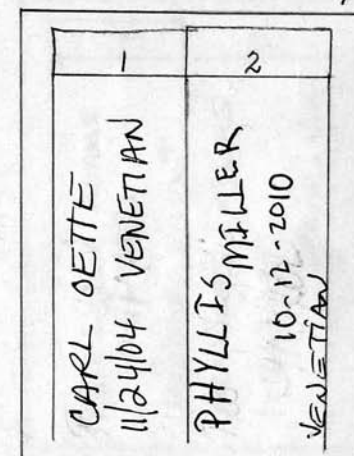 1
CARL OETTE
11/24/04 VENETIAN
2
PHYLLIS MILLER
10-12-2010
VENETIAN